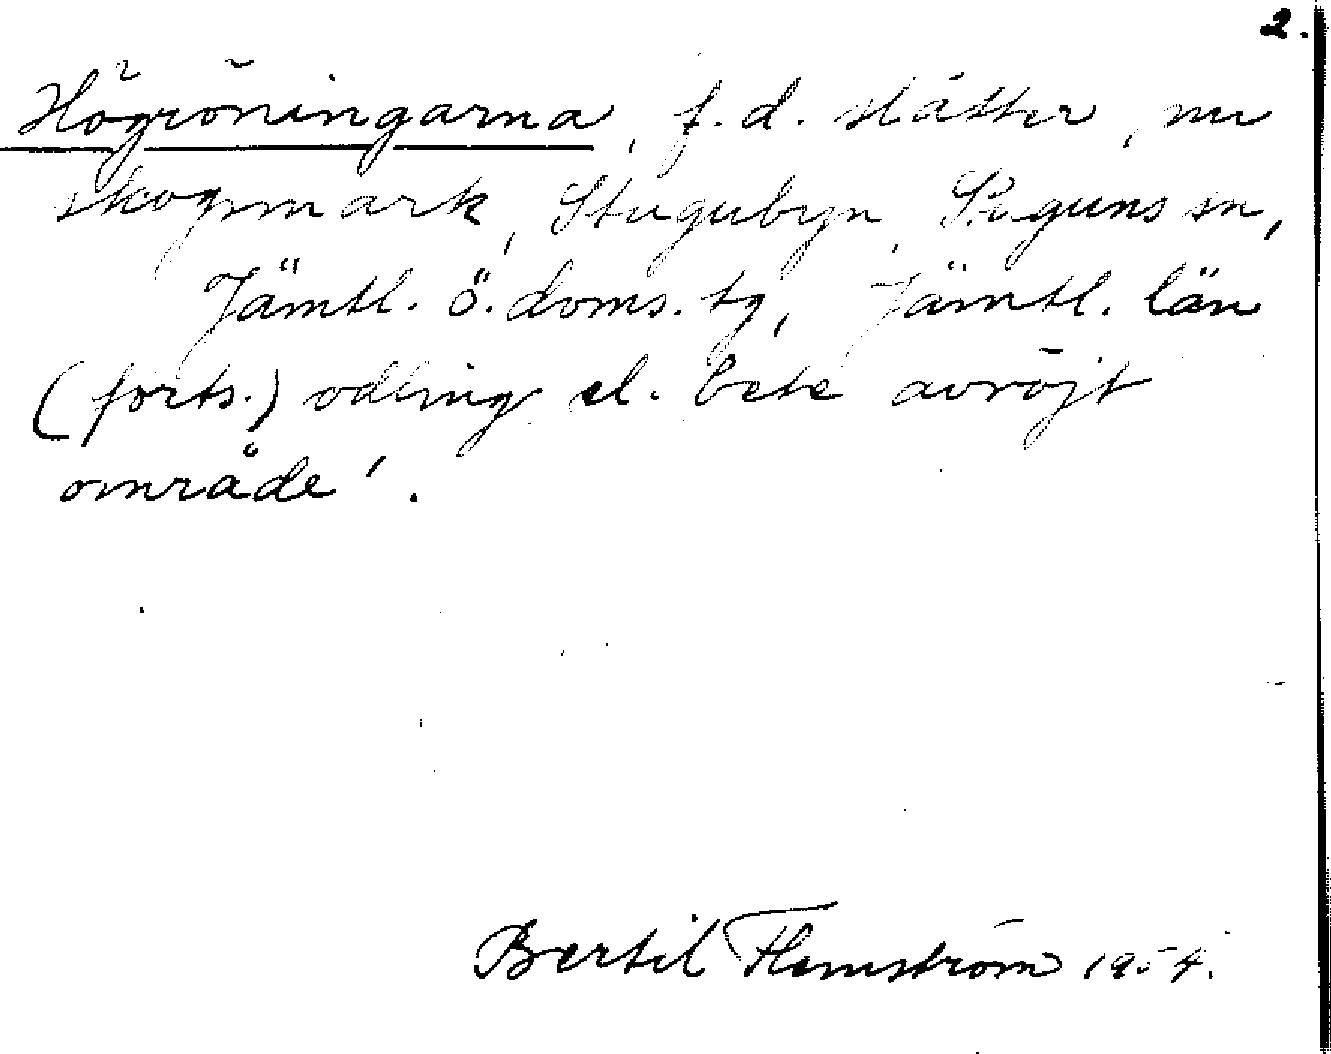 2.
Högröningarna, f.d. slåtter, nu
skogsmark, Stugubyn, Raguns sn,
Jämtl. ö. doms. tg, Jämtl. län
(forts.) odling el. bete avröjt
område'.
Bertil Flemström 1954.